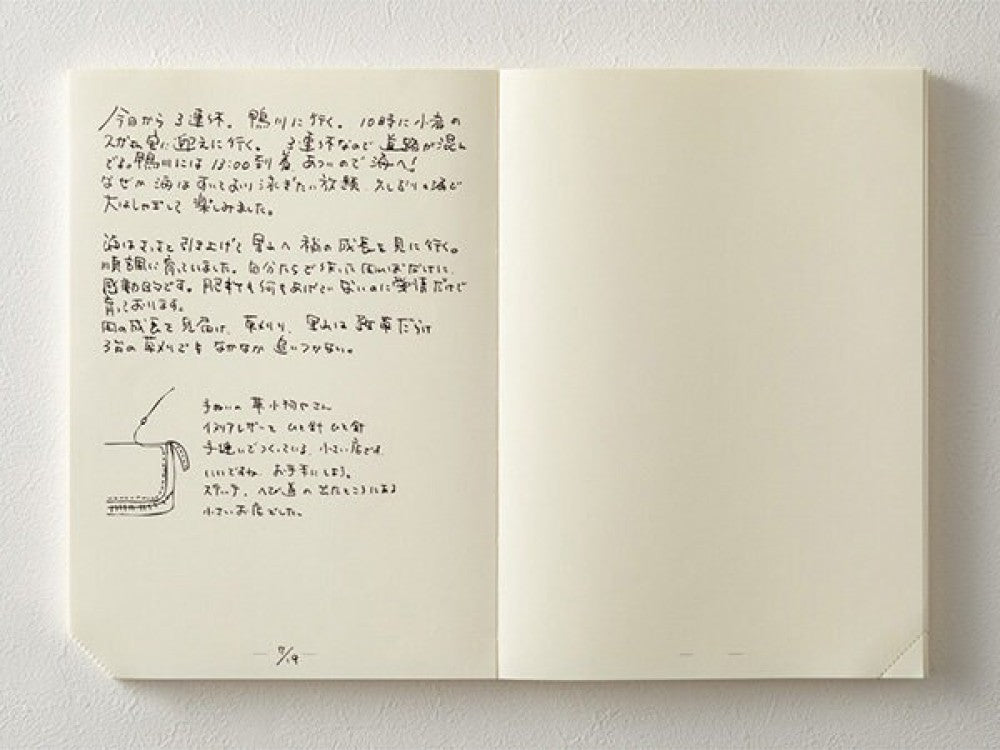 今日から3連休。鴨川に行く。10時に小岩の
迎えに行く。 3連休なので道路が混ん
でる。鴨川には13:00到着 あついので海へ!
なぜか海はすいており泳ぎたい放題 久しぶりの海で
大はしゃぎして楽しみました。
海はさっさと引き上げて里山へ稲の成長を見に行く。
順調に育っていました。自分たちで作った田んぼだけに
感動的です。肥料も何もあげていないのに愛情だけで
育っております。
田の成長を見届け、草メリリ、里山は雑草だらけ
3泊の草メリでもなかなか追いつかない。
手ぬいの革小物やさん
イタリアレザーを ひと針ひと針
手縫いでつくっている、小さい店です
いいですね、お手本にしよう。
ステッチ、へび道の出たところにある
小さいお店でした。
7/19